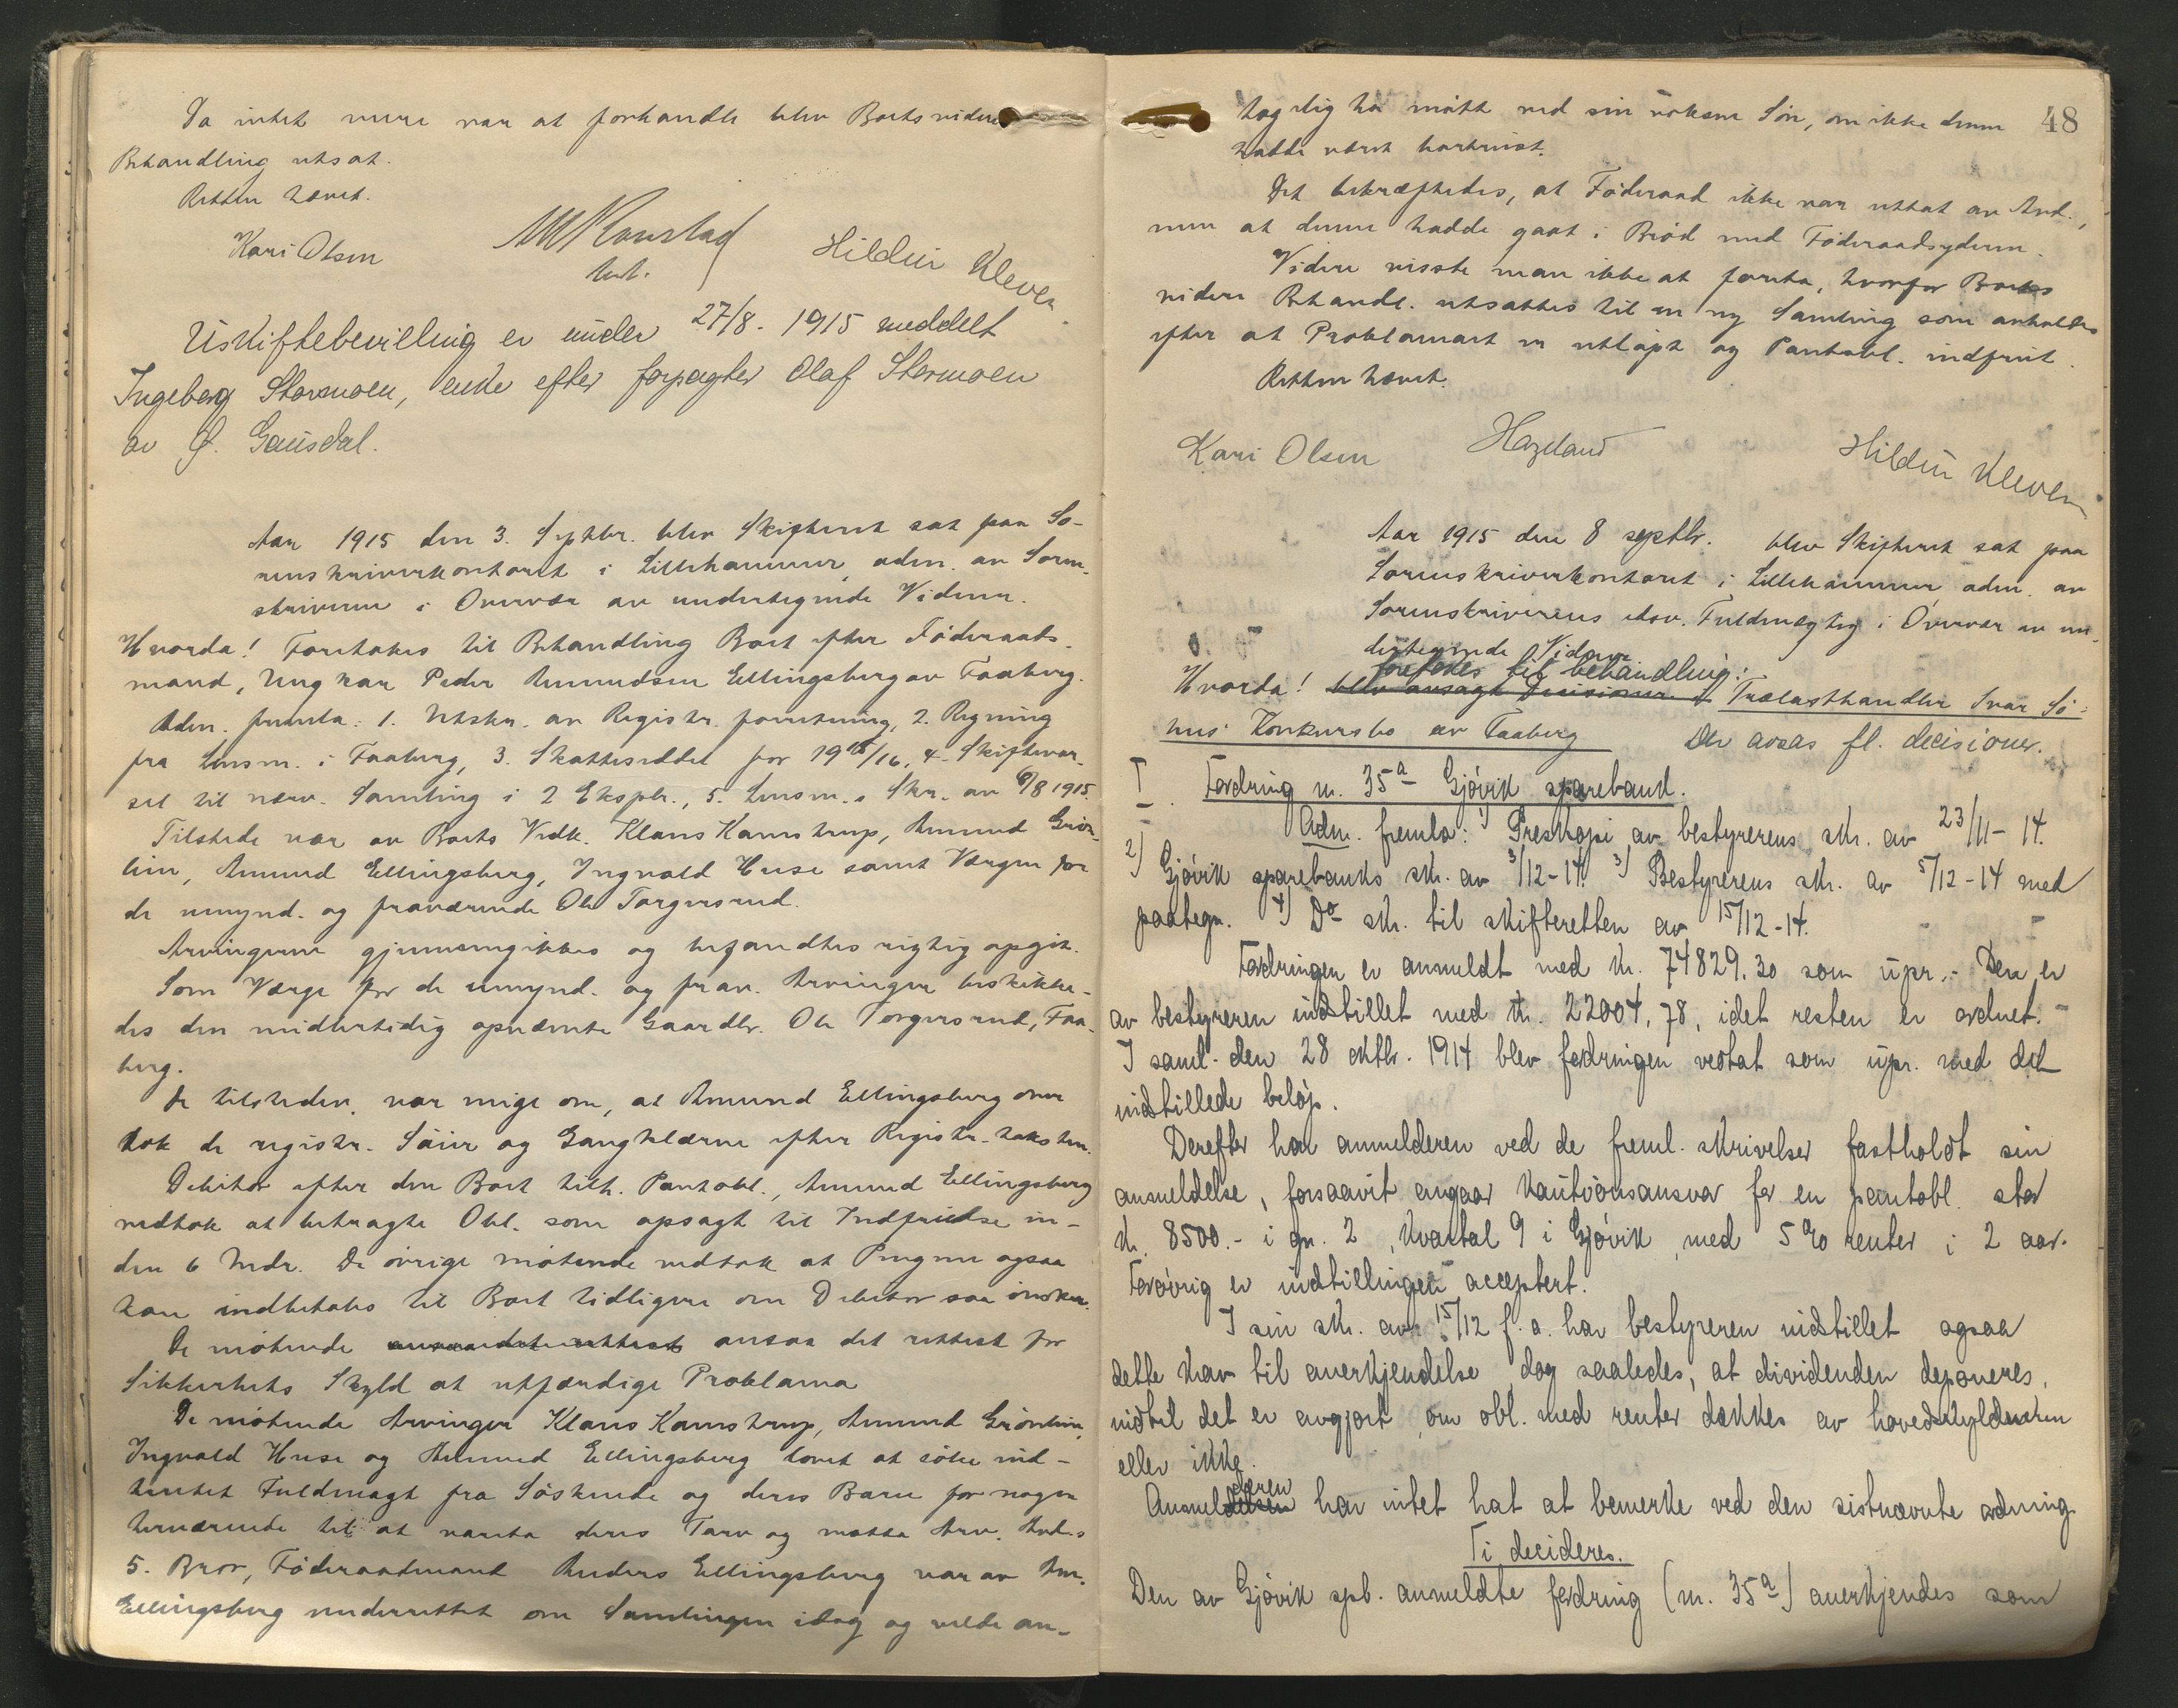 Da intet mere var at forhandle blev Boets videre
Behandling utsat.
Retten hævet.
Kari Olsen Hildur Kleven
Uskiftebevilling er under 27/8. 1915 meddelt
Ingeborg Stormoen, enke efter forpagter Olaf Stormoen
av Ø. Gausdal.
Aar 1915 den 3. Septbr. blev Skifteret sat paa So-
renskriverkontoret i Lillehammer, adm. av Soren-
skriveren i Overvær av undertegnede Vidner.
Hvorda! Foretokes til Behandling Boet efter Føderaads-
mand, Ungkar Peder Amundsen Ellingsberg av Faaberg.
Adm. fremla: 1. Utskr. av Registr. forretning, 2. Regning
fra Lensm. i Faaberg, 3. Skatteseddel for 1915/16, 4. Skiftevar-
sel til nærv. Samling i 2 Eksplr., 5. Lensm.s Skr. av 6/8 1915.
Tilstede var av Boets Vedk. Klaus Kamstrup, Amund Grøn-
lien, Amund Ellingsberg, Ingvald Huse samt Værgen for
de umynd. og fraværende Ole Torgersrud.
Arvingerne gjennemgikkes og befandtes rigtig opgit.
Som Værge for de umynd. og frav. Arvinger beskikke-
des den midlertidig opnævnte Gaardbr. Ole Torgersrud, Faa-
berg.
De tilstedev. var enige om, at Amund Ellingsberg over
tok de registr. Saker og Gangklærne efter Registr. taksten.
Debitor efter den Boet tilh. Pantobl., Amund Ellingsberg
vedtok at betragte Obl. som opsagt til Indfrielse in-
den 6 Mdr. De øvrige møtende vedtok at Pengene ogsaa
kan indbetales til Boet tidligere om Debitor saa ønsker.
De møtende ansaa det rettest for
Sikkerhets Skyld at utfærdige Proklama
De møtende Arvinger Klaus Kamstrup, Amund Grønlien,
Ingvald Huse og Amund Ellingsberg lovet at søke ind-
hentet Fuldmagt fra Søskende og deres Barn for nogen
herværende til at vareta deres Tarv og motta Arv. Avd.s
5. Bror, Føderaadmand Anders Ellingsberg var av Am.
Ellingsberg underrettet om Samlingen idag og vilde an-
48
tagelig ha møtt ved sin voksne Søn, om ikke denne
hadde været bortreist.
Det bekræftedes, at Føderaad ikke var uttat av Avd.,
men at denne hadde gaat i Brød med Føderaadsyderen.
Videre visste man ikke at foreta, hvorfor Boets
videre Behandl. utsattes til en ny Samling som avholdes
efter at Proklamaet er utløpt og Pantobl. indfriet.
Retten hævet.
Kari Olsen Hildur Kleven
Aar 1915 den 8 septbr. blev Skifteret sat paa
Sorenskriverkontoret i Lillehammer adm. av
Sorenskriverens edsv. Fuldmægtig i Overvær av un-
dertegnede Vidner
foretokes til behandling:
Hvorda! blev avsagt Decisioner i Trælasthandler Ivar Sø-
hus' Konkursbo av Faaberg Der avsas fl. decisioner.
I. Fordring nr. 35a Gjøvik sparebank.
Adm. fremla: 1) Preskopi av bestyrerens skr. av 23/11-14.
2) Gjøvik sparebanks skr. av 3/12-14. 3) Bestyrerens skr. av 5/12-14 med
paategn. 4) Do skr. til skifteretten av 15/12-14.
Fordringen er anmeldt med kr. 74829.30 som upr. - Den er
av bestyreren indstillet med kr. 22004,78, idet resten er ordnet. -
I saml. den 28 oktbr. 1914 blev fordringen vedtat som upr. med det
indstillede beløp.
Derefter har anmelderen ved de freml. skrivelser fastholdt sin
anmeldelse, forsaavit angaar kautionsansvar for en pantobl. stor
kr. 8500.- i gr. 2, kvartal 9 i Gjøvik, med 5 % renter i 2 aar.
Forøvrig er indstillingen acceptert.
I sin skr. av 15/12 f.a. har bestyreren indstillet ogsaa
dette krav til anerkjendelse, dog saaledes, at dividenden deponeres,
indtil det er avgjort, om obl. med renter dækkes av hovedskyldneren
eller ikke.
Anmelderen har intet hat at bemerke ved den sistnævnte ordning
Ti decideres.
Den av Gjøvik spb. anmeldte fordring (nr. 35a) anerkjendes som